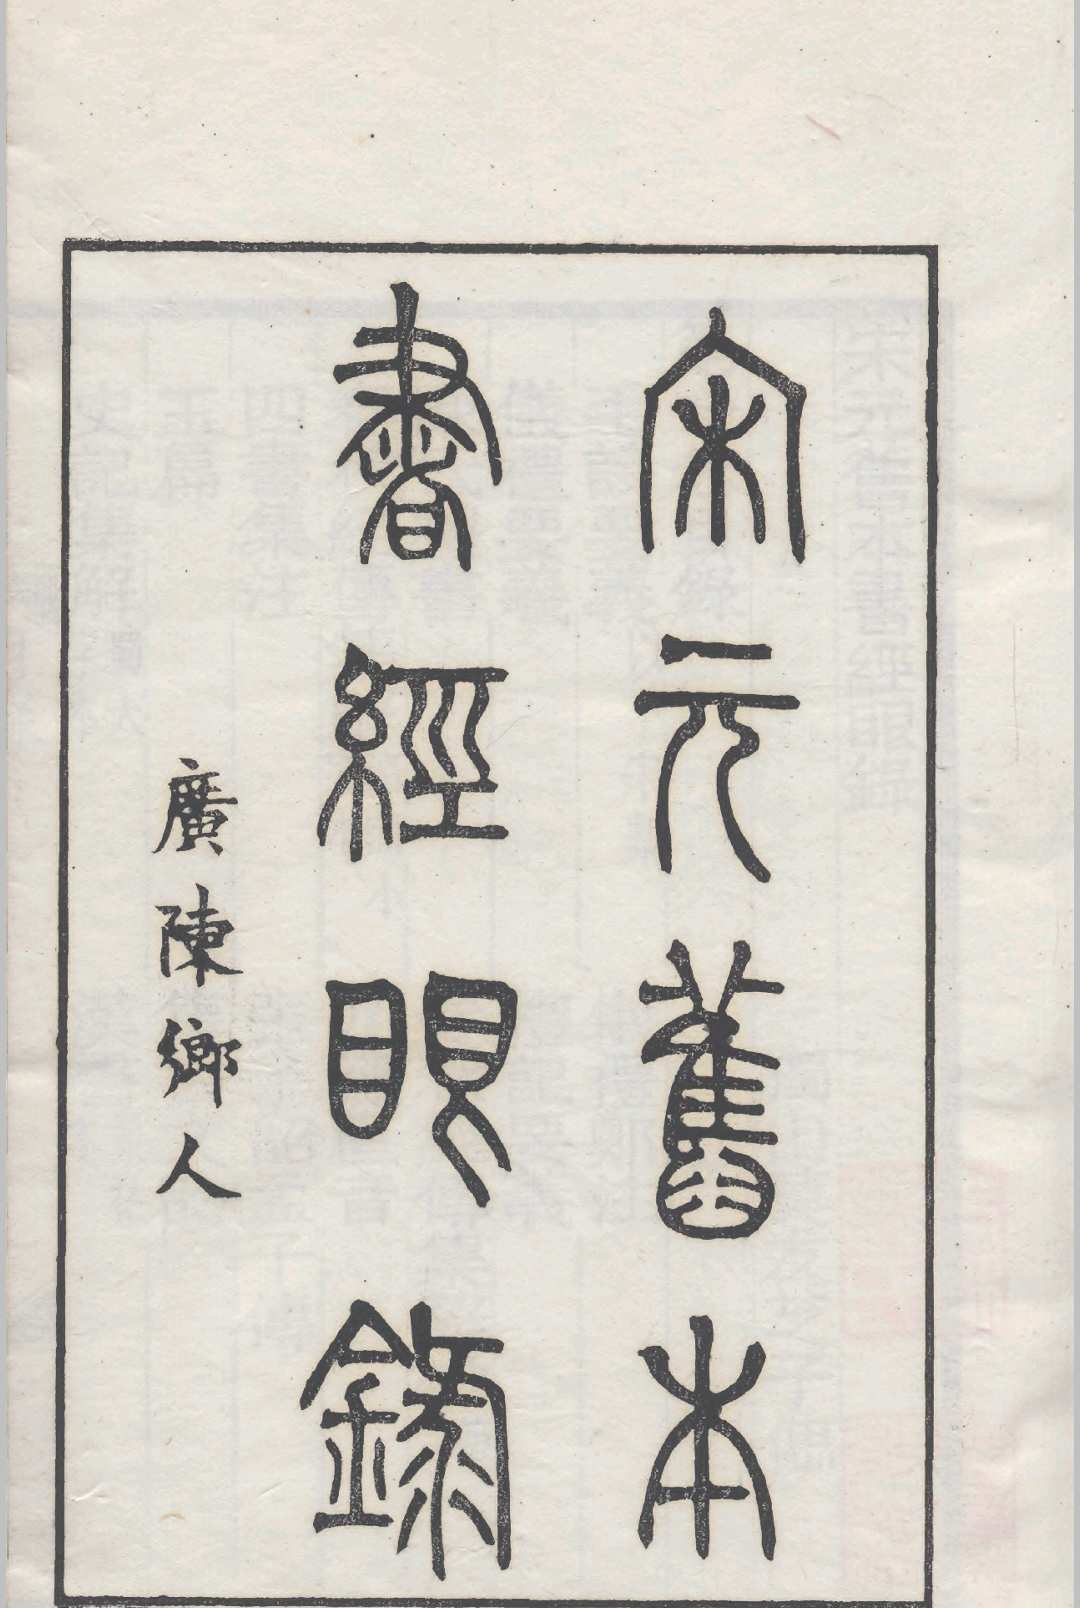 宋元舊本
書經眼錄
廣陳鄉人